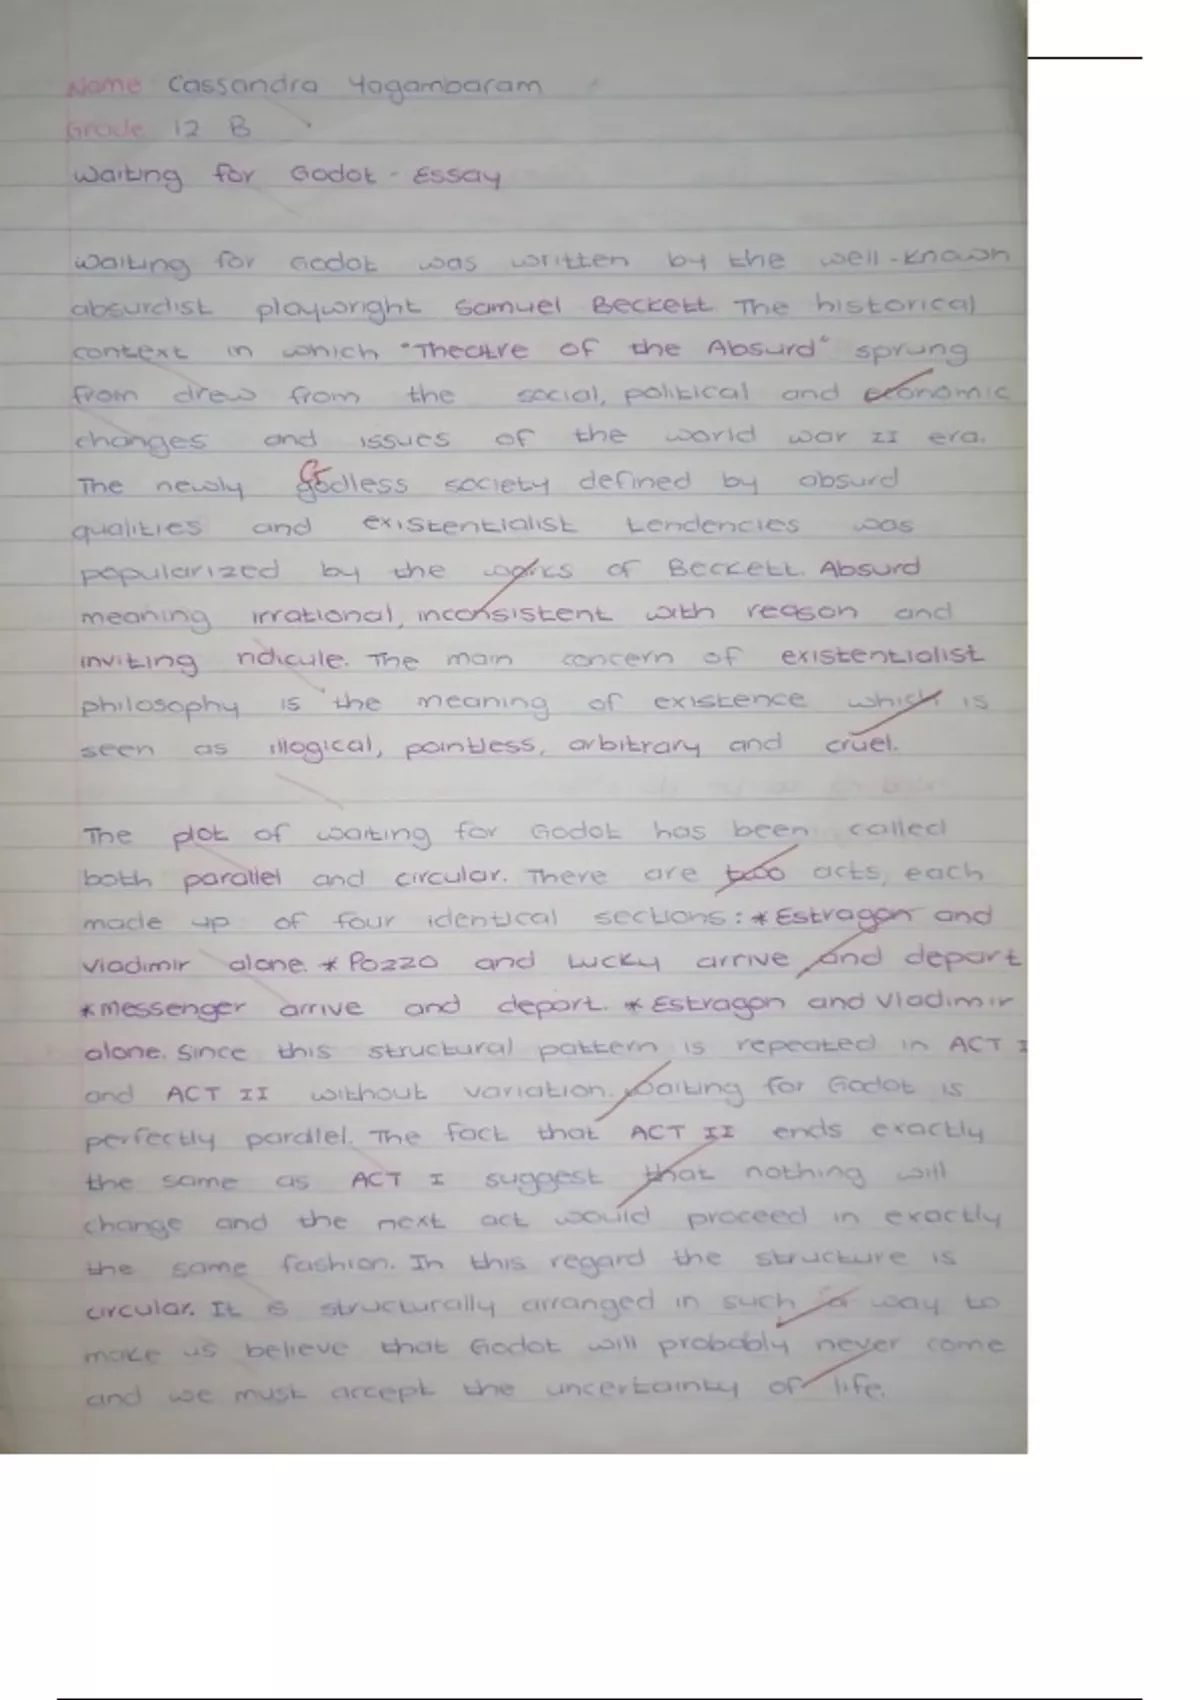 Name Cassandra Yogambaram
Grade 12 B
Waiting for Godot - Essay
Waiting for Godot was written by the well-known
absurdist playwright Samuel Beckett. The historical
context in which "Theatre of the Absurd" sprung
from drew from the social, political and economic
changes and issues of the world war II era.
The newly godless society defined by absurd
qualities and existentialist tendencies was
popularized by the works of Beckett. Absurd
meaning irrational, inconsistent with reason and
inviting ridicule. The main concern of existentialist
philosophy is the meaning of existence which is
seen as illogical, pointless, arbitrary and cruel.
The plot of waiting for Godot has been called
both parallel and circular. There are two acts, each
made up of four identical sections: * Estragon and
Vladimir alone. * Pozzo and Lucky arrive and depart
* Messenger arrive and depart. * Estragon and Vladimir
alone. Since this structural pattern is repeated in ACT I
and ACT II without variation. Waiting for Godot is
perfectly parallel. The fact that ACT II ends exactly
the same as ACT I suggest that nothing will
change and the next act would proceed in exactly
the same fashion. In this regard the structure is
circular. It is structurally arranged in such a way to
make us believe that Godot will probably never come
and we must accept the uncertainty of life.